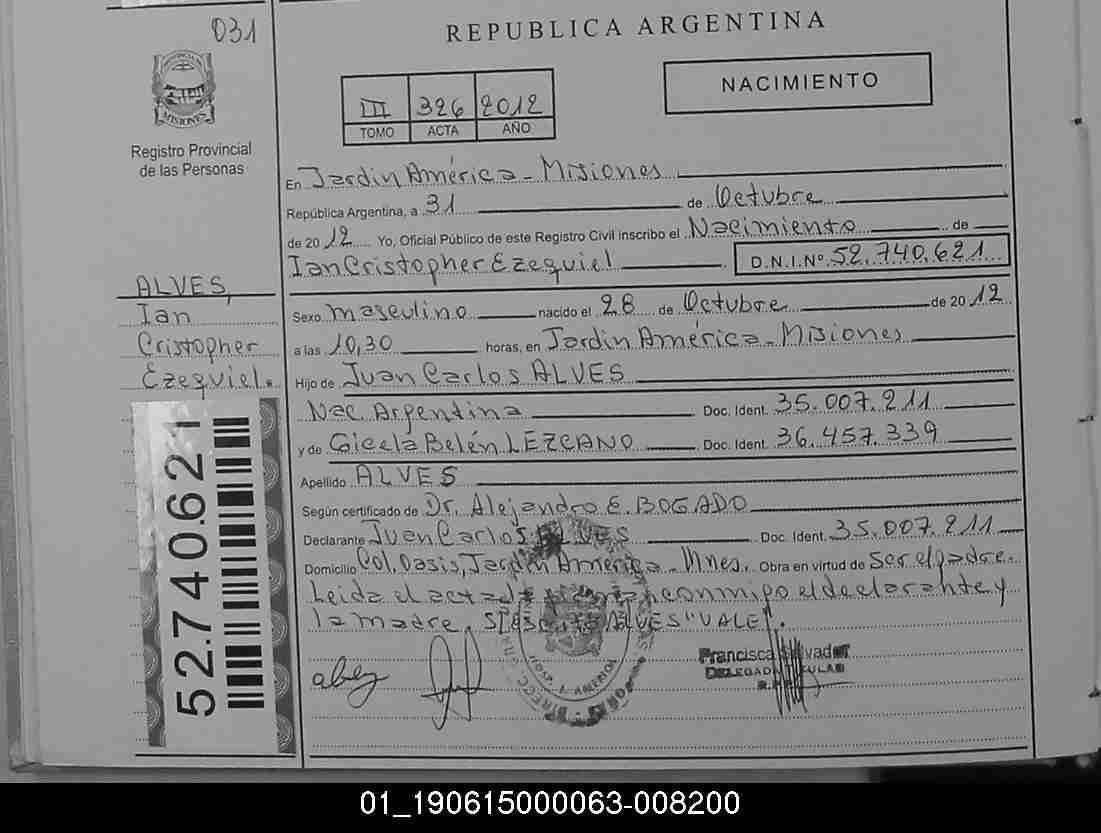 031
REPUBLICA ARGENTINA
PROVINCIA DE
MISIONES
Registro Provincial
de las Personas
III 326 2012
TOMO ACTA AÑO
NACIMIENTO
En Jardín América - Misiones
República Argentina, a 31 de Octubre
de 2012 Yo, Oficial Público de este Registro Civil inscribo el Nacimiento de
Ian Cristopher Ezequiel D.N.I.Nº 52.740.621
ALVES,
Ian
Cristopher
Ezequiel.
Sexo masculino nacido el 28 de Octubre de 2012
a las 10,30 horas, en Jardín América - Misiones
Hijo de Juan Carlos ALVES
Nac. Argentina Doc. Ident. 35.007.211
y de Gicela Belén LEZCANO Doc. Ident. 36.457.339
Apellido ALVES
Según certificado de Dr. Alejandro E. BOGADO
Declarante Juan Carlos ALVES Doc. Ident. 35.007.211
Domicilio Col. Oasis, Jardín América - Mnes. Obra en virtud de ser el padre.
Leida el acta conmigo el declarante y
la madre. ALVES "VALE".
52.740.621
Francisca Salvador
DELEGADA TITULAR
HOSP. J. AMERICA
01_190615000063-008200